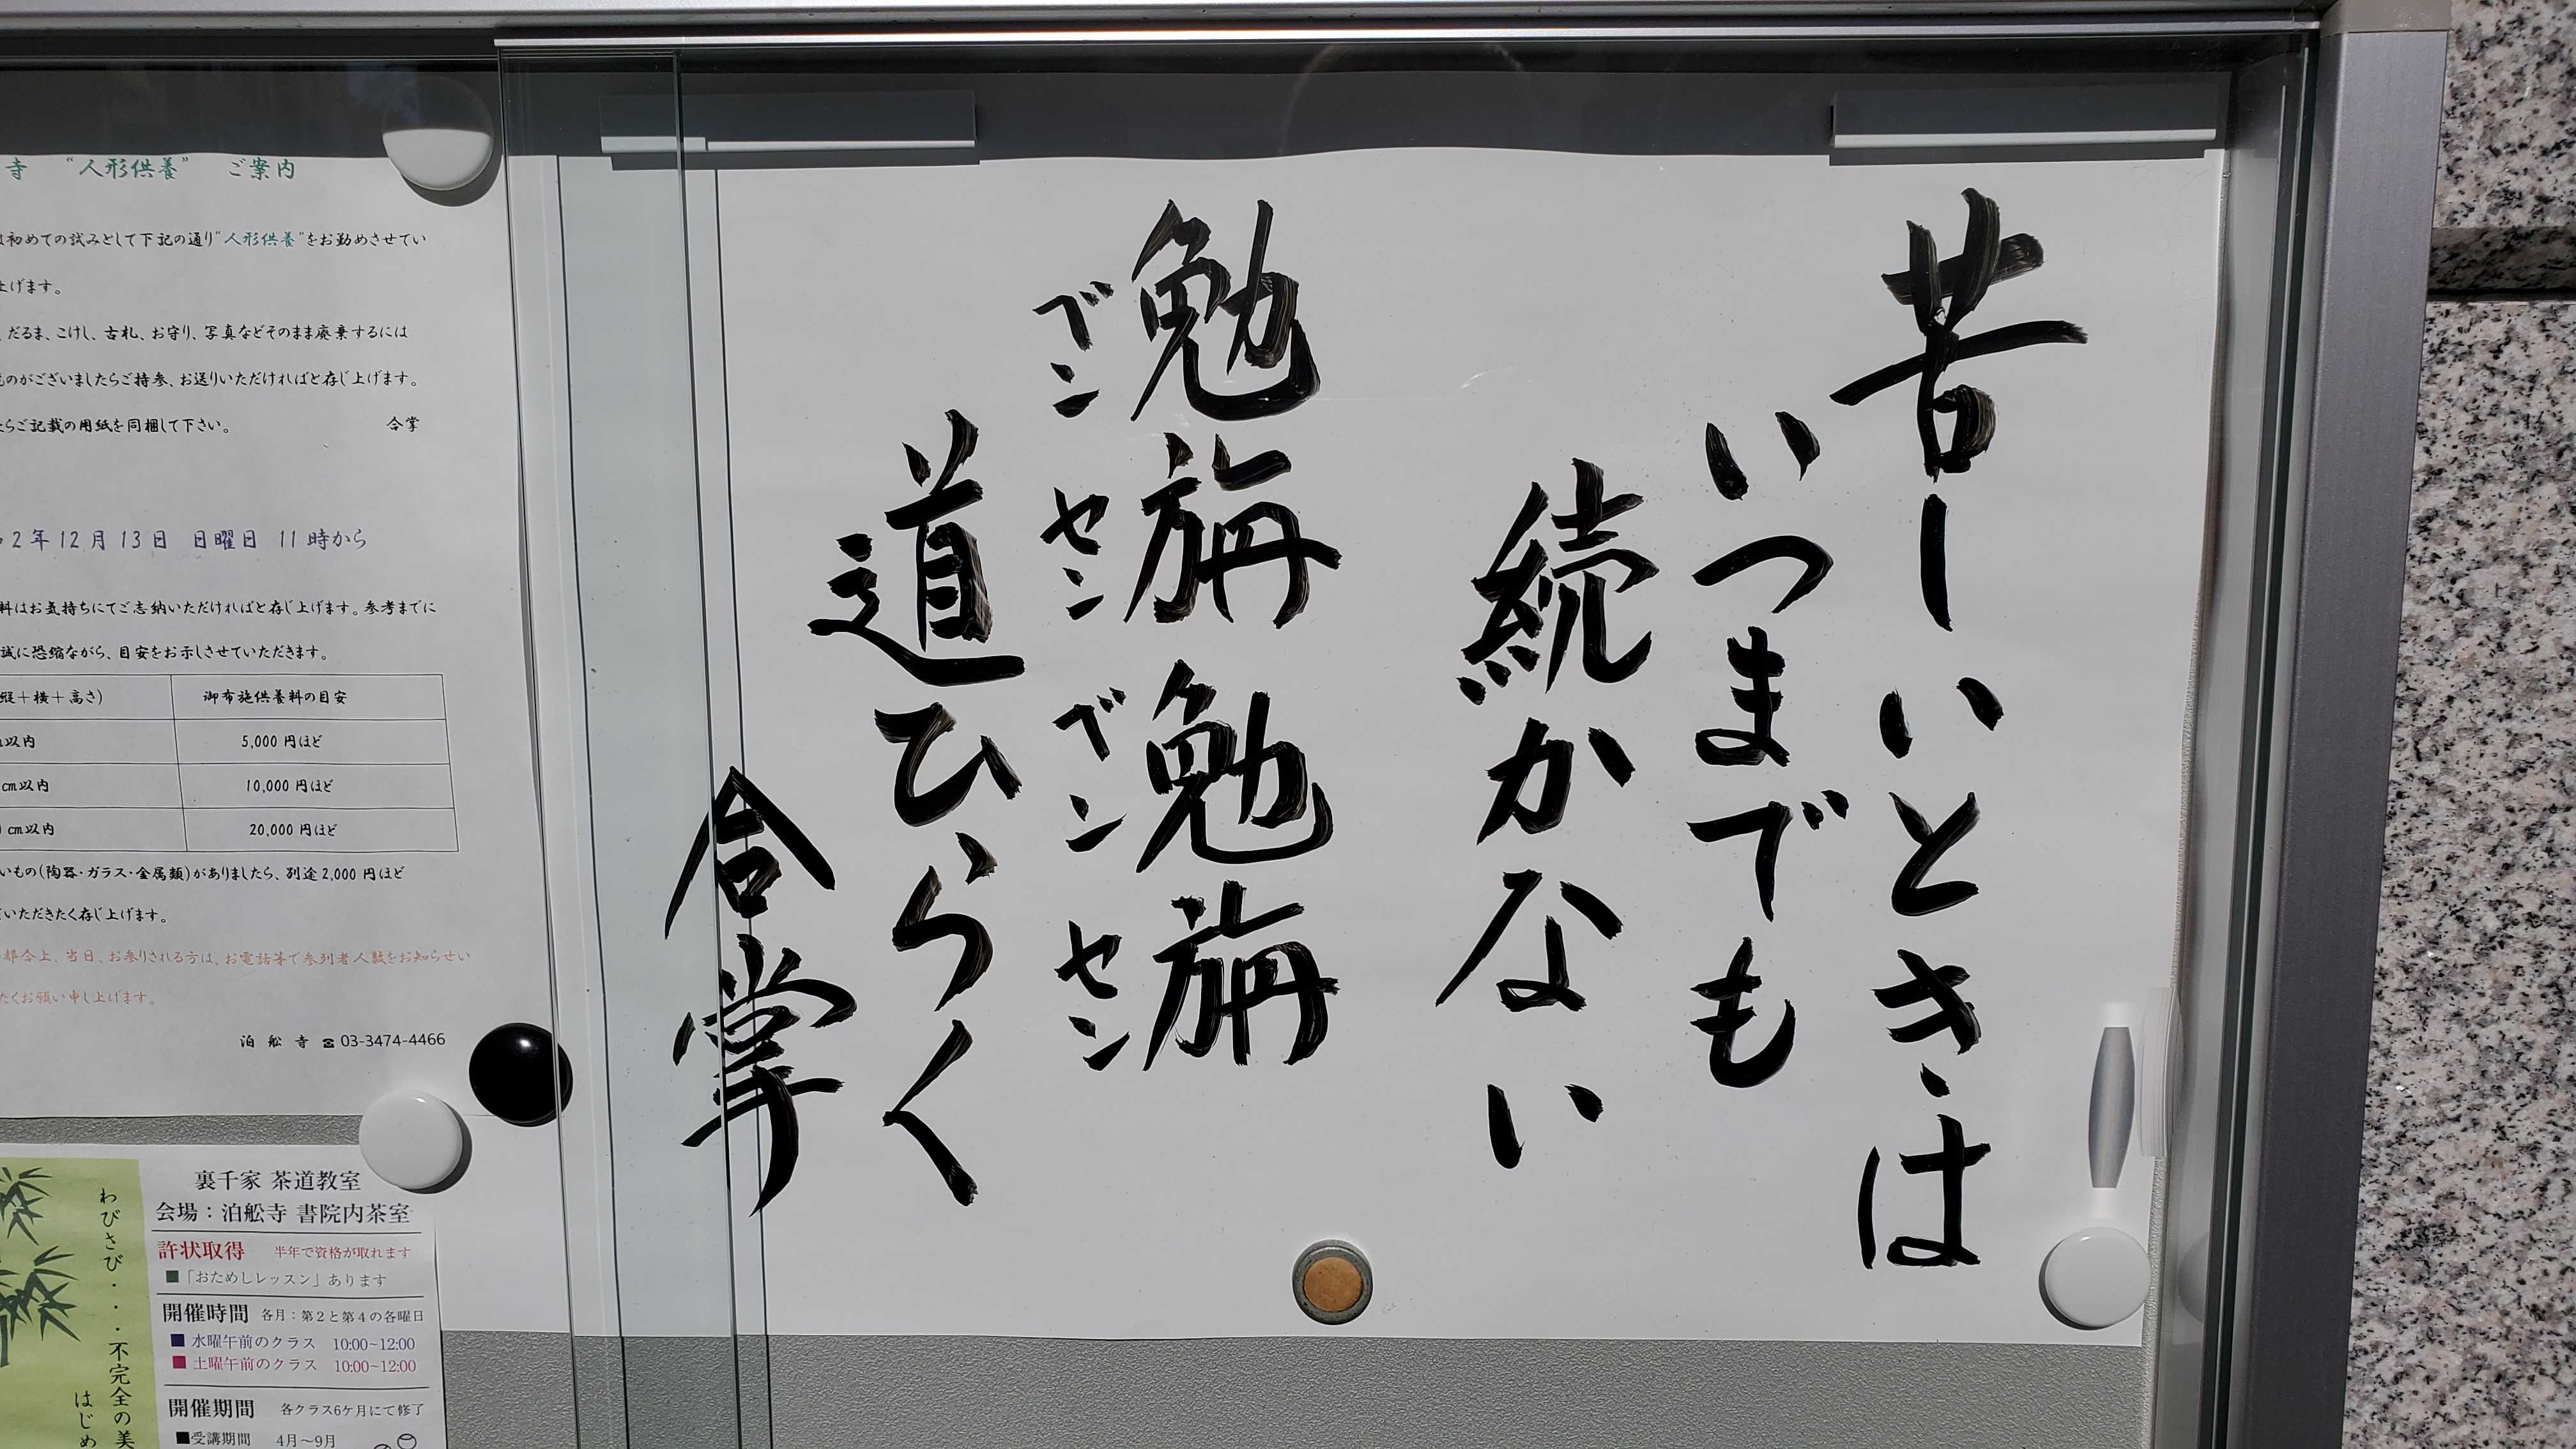 苦しいときは
いつまでも
続かない
勉旃勉旃
ベンセンベンセン
道ひらく
合掌
寺 "人形供養" ご案内
初めての試みとして下記の通り"人形供養"をお勤めさせてい
上げます。
だるま、こけし、古札、お守り、写真などそのまま廃棄するには
ものがございましたらご持参、お送りいただければと存じ上げます。
らご記載の用紙を同梱して下さい。 合掌
2年12月13日 日曜日 11時から
料はお気持ちにてご志納いただければと存じ上げます。参考までに
誠に恐縮ながら、目安をお示しさせていただきます。
縦+横+高さ) 御布施供養料の目安
以内 5,000円ほど
cm以内 10,000円ほど
cm以内 20,000円ほど
いもの(陶器・ガラス・金属類)がありましたら、別途2,000円ほど
いただきたく存じ上げます。
都合上、当日、お参りされる方は、お電話等で参列者人数をお知らせい
たくお願い申し上げます。
泊舩寺 ☎03-3474-4466
わびさび・・・不完全の美
はじめ
裏千家 茶道教室
会場：泊舩寺 書院内茶室
許状取得 半年で資格が取れます
■「おためしレッスン」あります
開催時間 各月：第2と第4の各曜日
■ 水曜午前のクラス 10:00~12:00
■ 土曜午前のクラス 10:00~12:00
開催期間 各クラス6ケ月にて修了
■受講期間 4月～9月